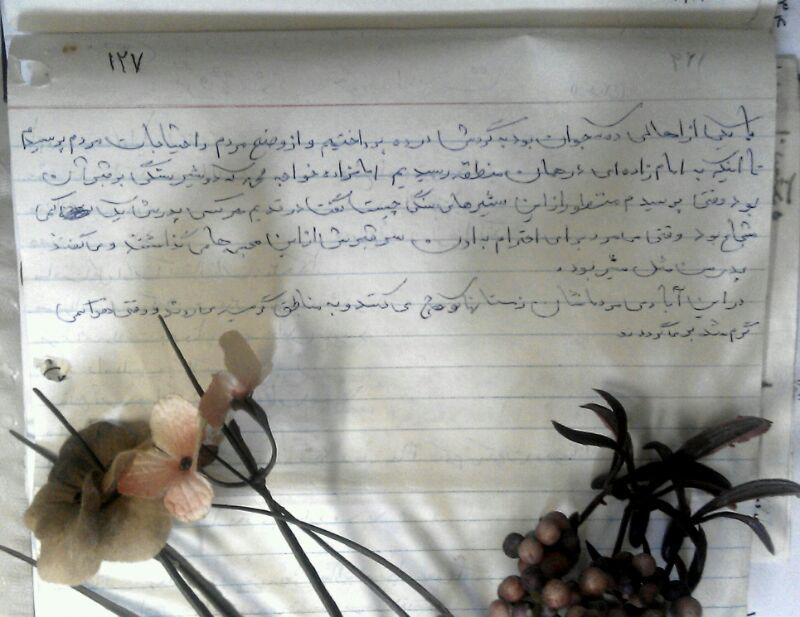 ۱۲۷
با یکی از اهالی ده که جوان بود به گردش در ده پرداختیم و از وضع مردم و احتیاجات مردم پرسیدم
تا اینکه به امام زاده‌ای در همان منطقه رسیدیم امامزاده خواجه که دو شیر سنگی بر قبر آن
بود وقتی پرسیدم منظور از این شیرهای سنگی چیست گفت در قدیم هر کس پدرش یک کمی
شجاع بود وقتی می‌مرد برای احترام به او سر قبرش از این مجسمه‌ها می‌گذاشتند و می‌گفتند
پدر من مثل شیر بود.
در این آبادی مردمانشان زمستانها کوچ می‌کنند و به مناطق گرمسیر می‌روند و وقتی هوا کمی
گرم شد برمی‌گردند